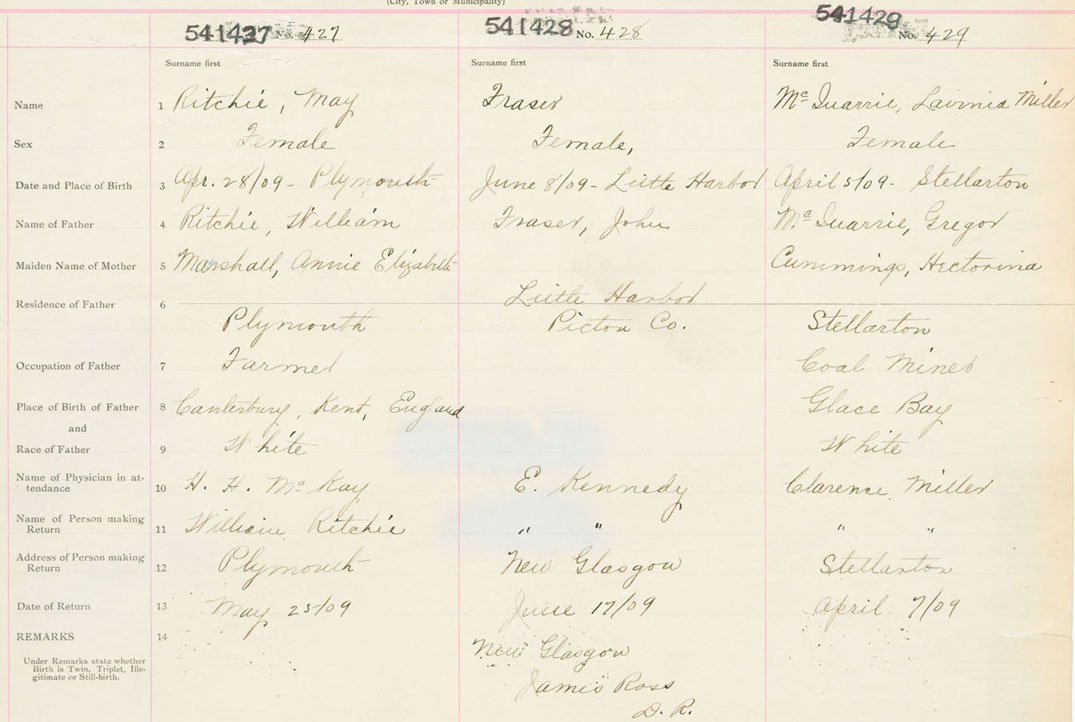 (City, Town or Municipality)
541427 No. 427 541428 No. 428 541429 No. 429
Surname first Surname first Surname first
Name 1 Ritchie, May Fraser McQuarrie, Lavinia Miller
Sex 2 Female Female, Female
Date and Place of Birth 3 Apr. 28/09 - Plymouth June 8/09 - Little Harbor April 5/09 - Stellarton
Name of Father 4 Ritchie, William Fraser, John McQuarrie, Gregor
Maiden Name of Mother 5 Marshall, Annie Elizabeth Cummings, Hectorina
Residence of Father 6 Little Harbor
Plymouth Pictou Co. Stellarton
Occupation of Father 7 Farmer Coal Miner
Place of Birth of Father 8 Canterbury, Kent, England Glace Bay
and
Race of Father 9 White White
Name of Physician in at-
tendance 10 H. H. McKay E. Kennedy Clarence Miller
Name of Person making
Return 11 William Ritchie " " " "
Address of Person making
Return 12 Plymouth New Glasgow Stellarton
Date of Return 13 May 25/09 June 17/09 April 7/09
REMARKS 14
New Glasgow
Under Remarks state whether
Birth is Twin, Triplet, Ille-
gitimate or Still-birth.
James Ross
D. R.